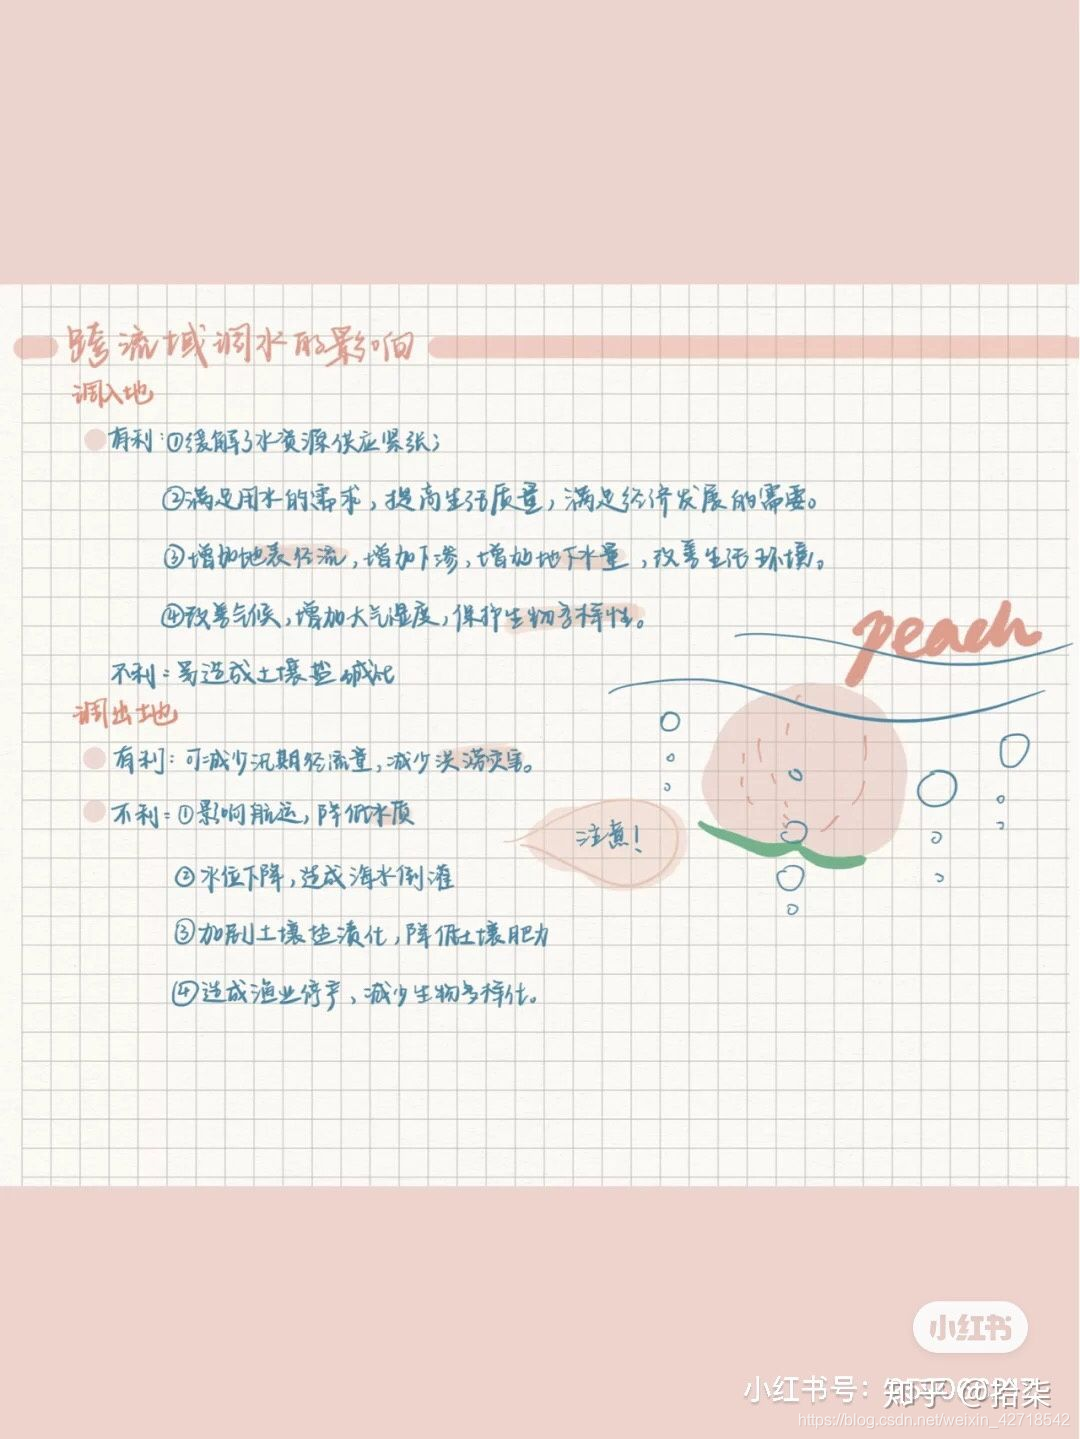 跨流域调水的影响
调入地
有利：①缓解了水资源供应紧张；
②满足用水的需求，提高生活质量，满足经济发展的需要。
③增加地表径流，增加下渗，增加地下水量，改善生活环境。
④改善气候，增加大气湿度，保护生物多样性。
peach
不利：易造成土壤盐碱化
调出地
有利：可减少汛期径流量，减少洪涝灾害。
不利：①影响航运，降低水质
注意！
②水位下降，造成海水倒灌
③加剧土壤盐渍化，降低土壤肥力
④造成渔业停产，减少生物多样化。
小红书
小红书号：
知乎 @拾柒
https://blog.csdn.net/weixin_42718542